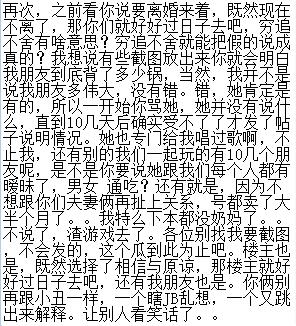 再次，之前看你说要离婚来着，既然现在
不离了，那你们就好好过日子去吧，穷追
不舍有啥意思？穷追不舍就能把假的说成
真的？我想说有些截图放出来你就会明白
我朋友到底背了多少锅，当然，我并不是
说我朋友多伟大，没有错。错，她肯定是
有的，所以一开始你骂她，她并没有说什
么，直到10几天后确实受不了了才发了帖
子说明情况。她也专门给我唱过歌啊，不
止我，还有别的我们一起玩的有10几个朋
友呢，是不是你要说她跟我们每个人都有
暧昧了，男女 通吃？还有就是，因为不
想跟你们夫妻俩再扯上关系，号都卖了大
半个月了。。我特么下本都没奶妈了。。
不说了，渣游戏去了。各位别找我要截图
，不会发的，这个瓜到此为止吧。楼主也
是，既然选择了相信与原谅，那楼主就好
好过日子去吧，还有我朋友也是。你俩别
再跟小丑一样，一个瞎JB乱想，一个又跳
出来解释。让别人看笑话了。。